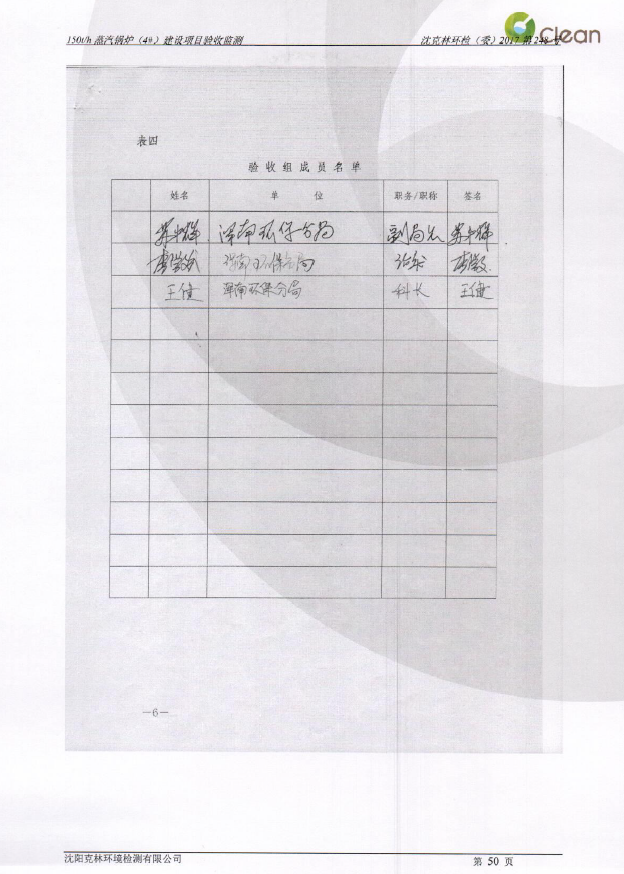 150t/h 蒸汽锅炉（4#）建设项目验收监测 沈克林环检（委）2017 第 248 号
Clean
表四
验收组成员名单
姓名 单位 职务/职称 签名
浑南环保分局 副局长
浑南环保分局
王健 浑南环保分局 科长 王健
—6—
沈阳克林环境检测有限公司 第 50 页